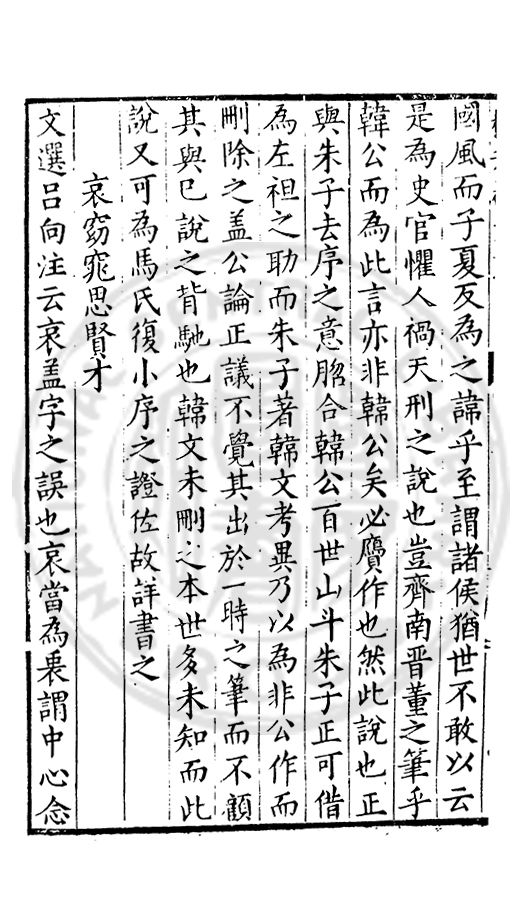 國風而子夏反為之諱乎至謂諸侯猶世不敢以云
是為史官懼人禍天刑之說也豈齊南晋董之筆乎
韓公而為此言亦非韓公矣必贗作也然此說也正
與朱子去序之意脗合韓公百世山斗朱子正可借
為左袒之助而朱子著韓文考異乃以為非公作而
刪除之盖公論正議不覺其出於一時之筆而不顧
其與已說之背馳也韓文未刪之本世多未知而此
說又可為馬氏復小序之證佐故詳書之
哀窈窕思賢才
文選呂向注云哀盖字之誤也哀當為衷謂中心念